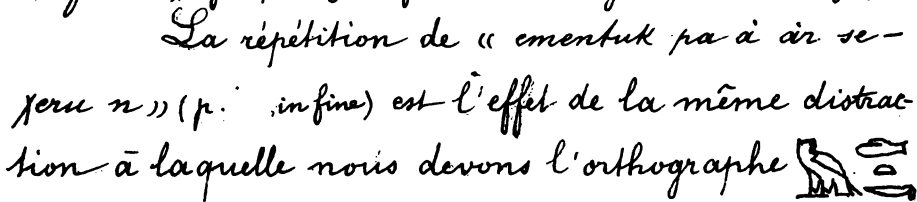 La répétition de « ementuk pa à àr se-
χeru n » (p. in fine) est l'effet de la même distrac-
tion à laquelle nous devons l'orthographe